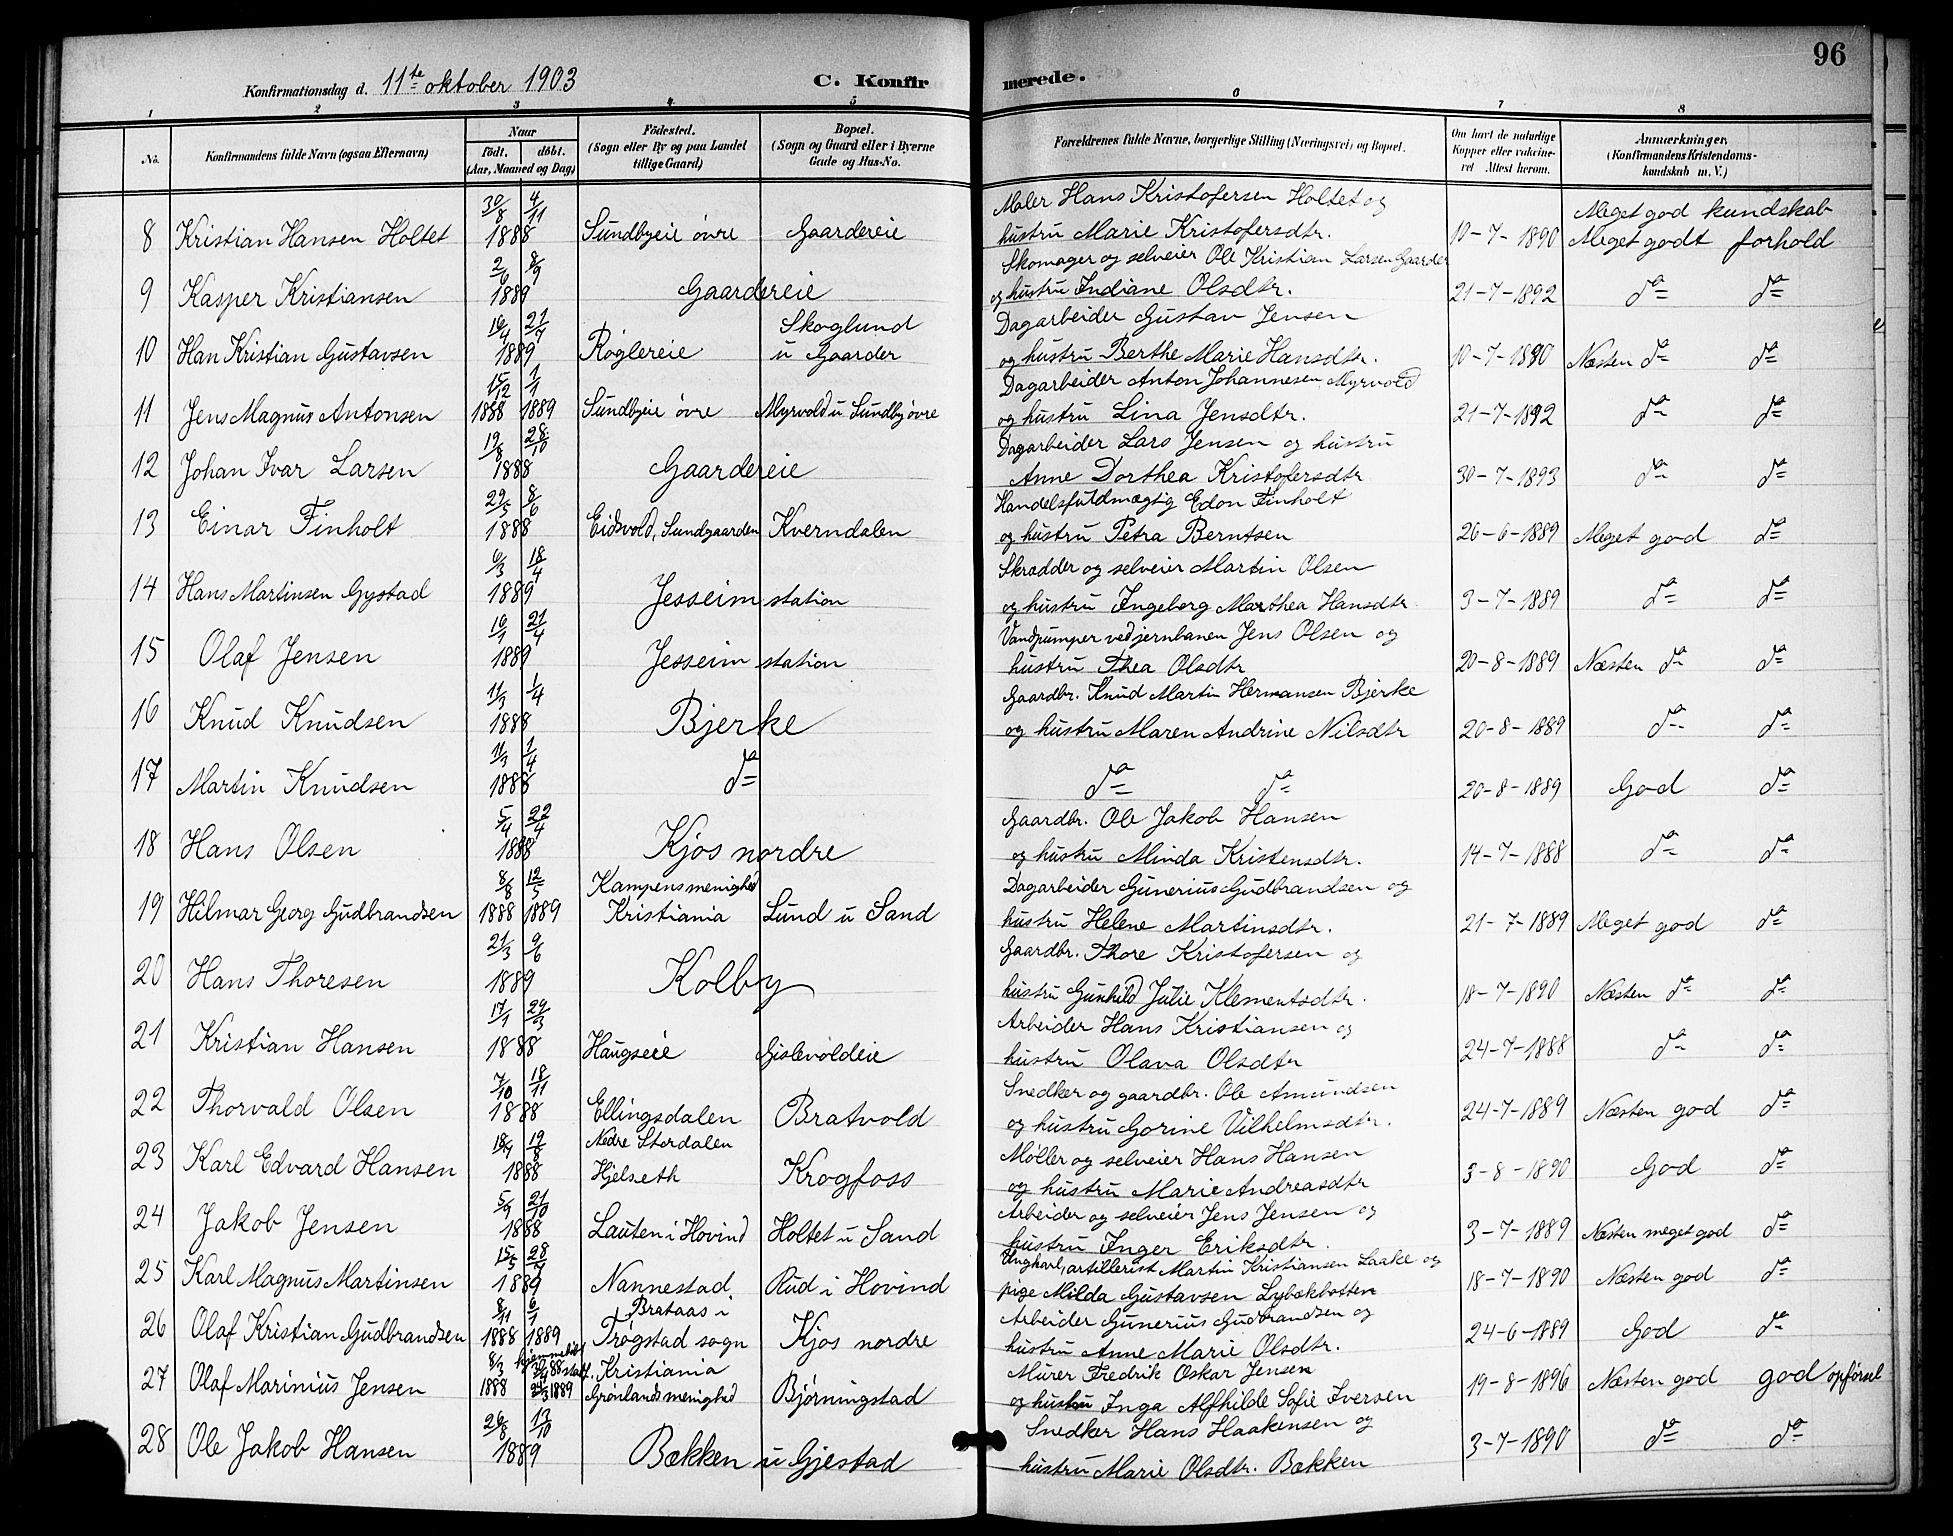 96
Konfirmationsdag d. 11te oktober 1903 C. Konfirmerede.
1 2 3 4 5 6 7 8
No. Konfirmandens fulde Navn (ogsaa Efternavn) Naar födt. döbt. (Aar, Maaned og Dag) Födested. (Sogn eller By og paa Landet tillige Gaard) Bopæl. (Sogn og Gaard eller i Byerne Gade og Hus-No. Forældrenes fulde Navne, borgerlige Stilling (Næringsvei) og Bopæl. Om havt de naturlige Kopper eller vakcineret. Attest herom. Anmerkninger. (Konfirmandens Kristendomskundskab m. V.)
30/8 4/11 Maler Hans Kristofersen Holtet og Meget god kundskab
8 Kristian Hansen Holtet 1888 Sundbyeie övre Gaardereie hustru Marie Kristofersdtr. 10-7-1890 Meget godt forhold
2/6 8/9 Skomager og selveier Ole Kristian Larsen Gaarder
9 Kasper Kristiansen 1889 Gaardereie og hustru Indiane Olsdtr. 21-7-1892 da da
16/4 21/7 Skoglund Dagarbeider Gustav Jensen
10 Han Kristian Gustavsen 1889 Röglereie u Gaarder og hustru Berthe Marie Hansdtr. 10-7-1890 Næsten da da
15/12 1/1 Dagarbeider Anton Johannesen Myrvold
11 Jens Magnus Antonsen 1888 1889 Sundbyeie övre Myrvold u Sundby övre og hustru Lina Jensdtr. 21-7-1892 da da
19/8 28/10 Dagarbeider Lars Jensen og hustru
12 Johan Ivar Larsen 1888 Gaardereie Anne Dorthea Kristofersdtr 30-7-1893 da da
29/5 8/6 Handelsfuldmægtig Edon Finholt
13 Einar Finholt 1888 Eidsvold, Sundgaarden Kverndalen og hustru Petra Berntsen 26-6-1889 Meget god da
6/3 18/4 Skrædder og selveier Martin Olsen
14 Hans Martinsen Gystad 1889 Jesseim station og hustru Ingeborg Marthea Hansdtr 3-7-1889 da da
16/1 21/4 Vandpumper ved jernbanen Jens Olsen og
15 Olaf Jensen 1889 Jesseim station hustru Thea Olsdtr 20-8-1889 Næsten da da
11/3 1/4 Gaardbr. Knud Martin Hermansen Bjerke
16 Knud Knudsen 1888 Bjerke og hustru Maren Andrine Nilsdtr 20-8-1889 da da
11/3 1/4
17 Martin Knudsen 1888 da da da 20-8-1889 God da
5/4 22/4 Gaardbr. Ole Jakob Hansen
18 Hans Olsen 1888 Kjos nordre og hustru Minda Kristensdtr. 14-7-1888 da da
8/8 12/5 Kampens menighed Dagarbeider Gunerius Gudbrandsen og
19 Hilmar Georg Gudbrandsen 1888 1889 Kristiania Lund u Sand hustru Helene Martinsdtr. 21-7-1889 Meget god da
21/3 9/6 Gaardbr. Thore Kristofersen og
20 Hans Thoresen 1889 Kolby hustru Gunhild Julie Klementsdtr. 18-7-1890 Næsten da da
17/1 29/3 Arbeider Hans Kristiansen og
21 Kristian Hansen 1888 Haugseie Gislevoldeie hustru Olava Olsdtr 24-7-1888 da da
7/10 18/11 Snedker og gaardbr. Ole Amundsen
22 Thorvald Olsen 1888 Ellingsdalen Bratvold og hustru Gorine Vilhelmsdtr. 24-7-1889 Næsten god da
19/8 Nedre Stordalen Möller og selveier Hans Hansen
23 Karl Edvard Hansen 1888 Hjelseth Krogfoss og hustru Marie Andreasdtr 3-8-1890 God da
5/9 21/10 Arbeider og selveier Jens Jensen og
24 Jakob Jensen 1888 Lauten i Hovind Holtet u Sand hustru Inger Eriksdtr. 3-7-1889 Næsten meget god da
15/5 28/7 Ungkarl, artillerist Martin Kristiansen Laake og
25 Karl Magnus Martinsen 1889 Nannestad Rud i Hovind pige Milda Gustavsen Lybækbotten 18-7-1890 Næsten god da
8/11 6/1 Brataas i Arbeider Gunerius Gudbrandsen og
26 Olaf Kristian Gudbrandsen 1888 1889 Trögstad sogn Kjos nordre hustru Anne Marie Olsdtr. 24-6-1889 God da
8/3 hjemmedöbt Kristiania Murer Fredrik Oskar Jensen
27 Olaf Marinius Jensen 1888 1889 Grönlands menighed Björningstad og hustru Inga Alfhilde Sofie Iversen 19-8-1896 Næsten god god opförsel
26/8 13/10 Snedker Hans Haakensen og
28 Ole Jakob Hansen 1889 Bækken u Gjestad hustru Marie Olsdtr. Bækken 3-7-1890 da da